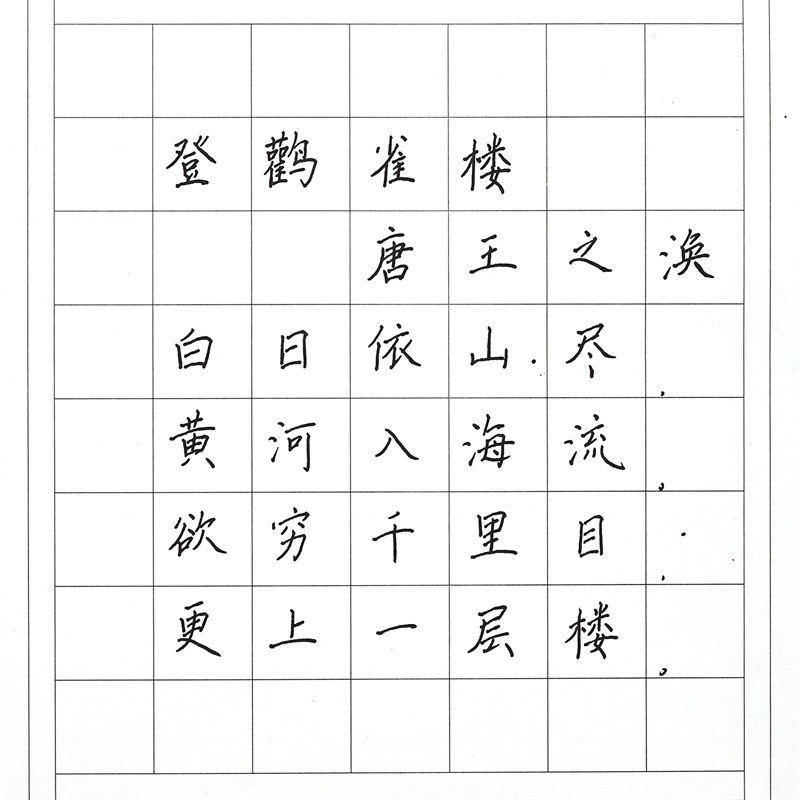 登鹳雀楼
唐王之涣
白日依山尽,
黄河入海流。
欲穷千里目,
更上一层楼。